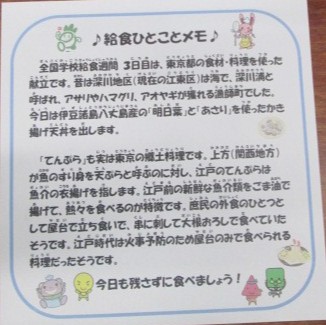 ♪給食ひとことメモ♪
全国学校給食週間 3日目は、東京都の食材・料理を使った
献立です。昔は深川地区(現在の江東区)は海で、深川浦と
呼ばれ、アサリやハマグリ、アオヤギが獲れる漁師町でした。
今日は伊豆諸島八丈島産の「明日葉」と「あさり」を使ったかき
揚げ天丼を出します。
「てんぷら」も実は東京の郷土料理です。上方(関西地方)
が魚のすり身を天ぷらと呼ぶのに対し、江戸のてんぷらは
魚介の衣揚げを指します。江戸前の新鮮な魚介類をごま油で
揚げて、熱々を食べるのが特徴です。庶民の外食のひとつと
して屋台で立ち食いで、串に刺して大根おろしで食べていた
そうです。江戸時代は火事予防のため屋台のみで食べられる
料理だったそうです。
今日も残さずに食べましょう！